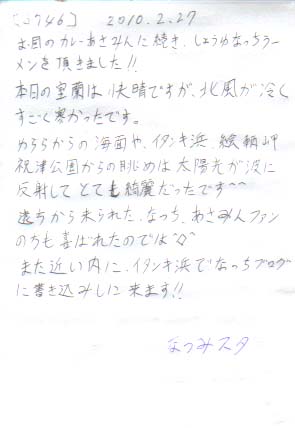 [0746] 2010.2.27
お昼のカレーあさみんに続き、しょうゆなっちラー
メンを頂きました!!
本日の室蘭は快晴ですが、北風が冷く
すごく寒かったです。
からの海面や、イタンキ浜、絵鞆岬
祝津公園からの眺めは太陽光が波に
反射してとても綺麗だったです^^
遠方から来られた、なっち、あさみんファン
の方も喜ばれたのでは^◇^
また近い内に、イタンキ浜でなっちブログ
に書き込みしに来ます!!
なつみスタ